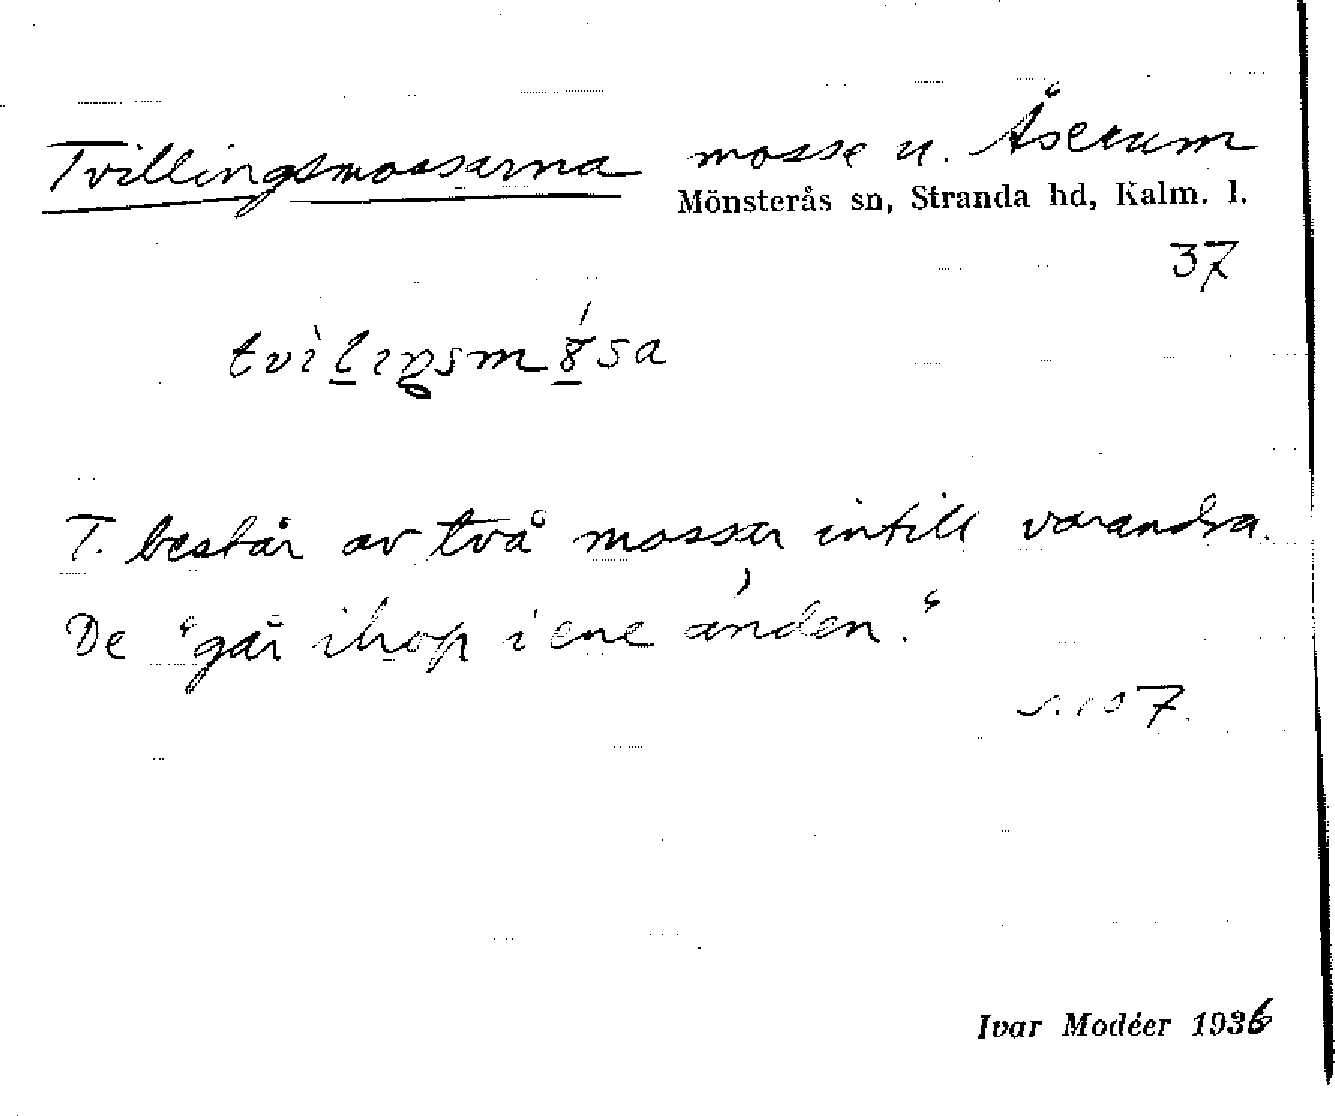 Tvillingsmossarna mosse u. Åserum
Mönsterås sn, Stranda hd, Kalm. l.
37
T. består av två mossar intill varandra.
De "går ihop i ene änden."
s. 107.
Ivar Modéer 1936